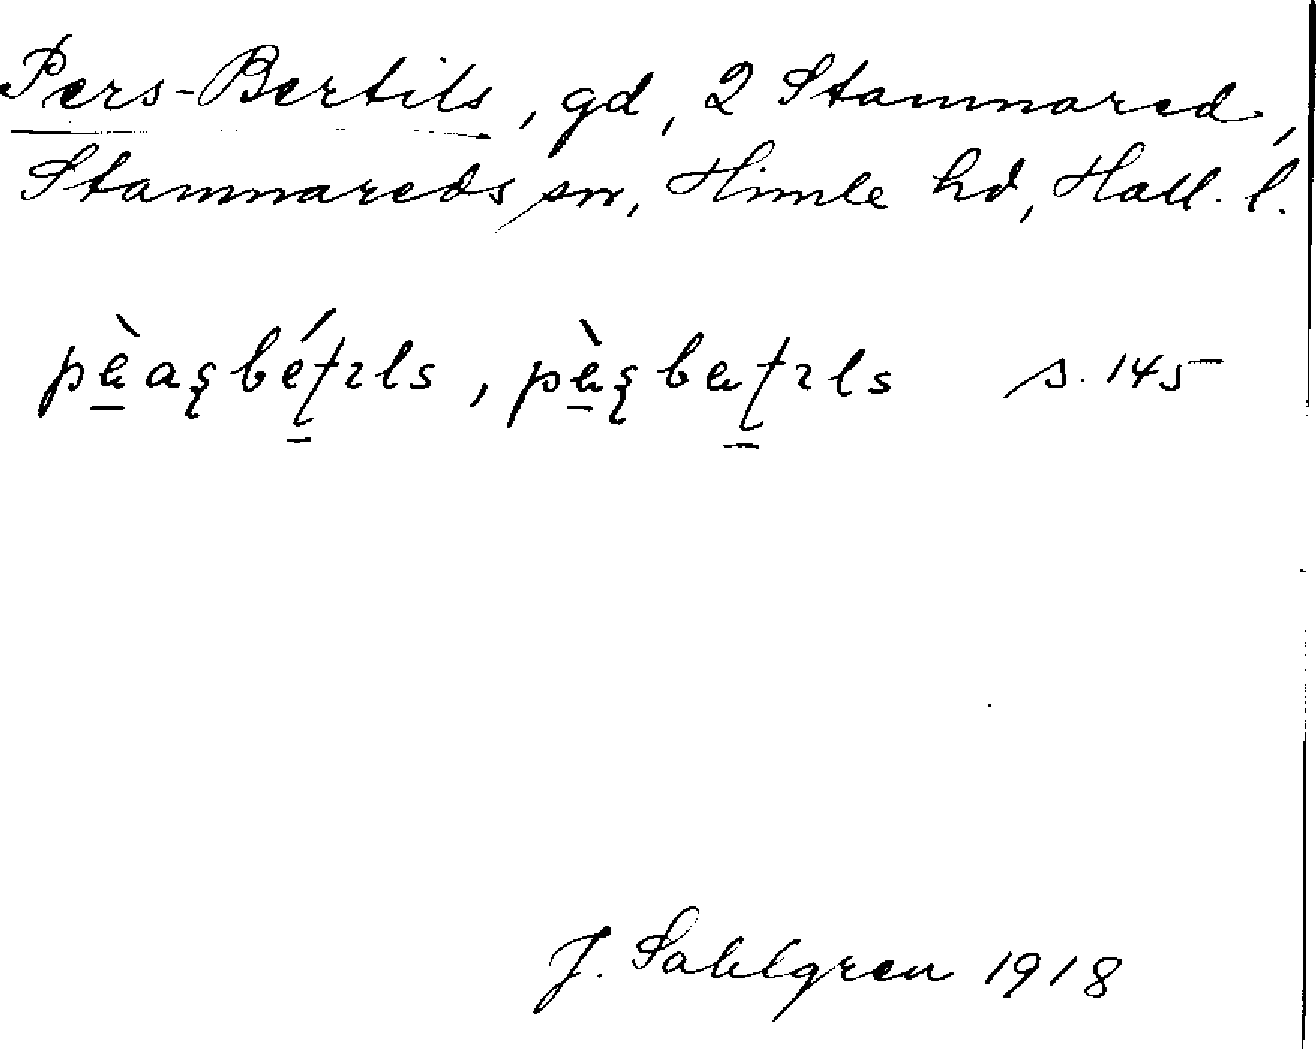 Pers-Bertils, gd, 2 Stamnared,
Stamnareds sn, Himle hd, Hall. l.
pæ̠̀aʂbé̠ʈɪls, pæ̠̀ʂbæʈ̠ɪls s. 145
J. Sahlgren 1918